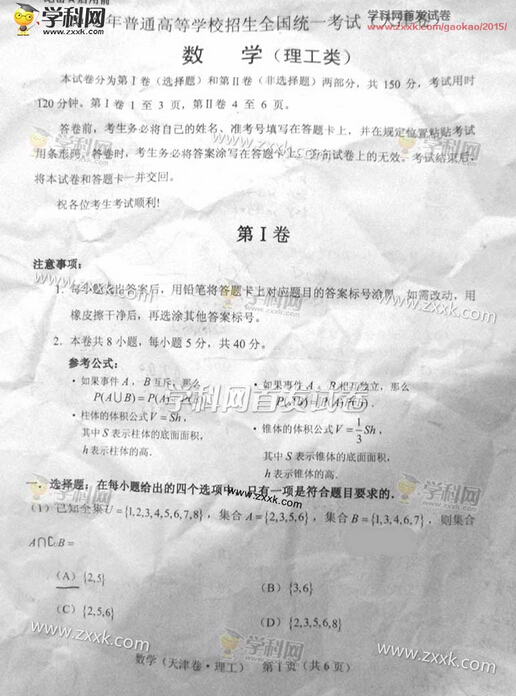 学科网
学科网首发试卷
www.zxxk.com/gaokao/2015/
年普通高等学校招生全国统一考试（天津卷）
数 学（理工类）
本试卷分为第Ⅰ卷（选择题）和第Ⅱ卷（非选择题）两部分，共 150 分，考试用时
120 分钟。第Ⅰ卷 1 至 3 页，第Ⅱ卷 4 至 6 页。
答卷前，考生务必将自己的姓名、准考号填写在答题卡上，并在规定位置粘贴考试
用条形码。答卷时，考生务必将答案涂写在答题卡上，答在试卷上的无效。考试结束后，
将本试卷和答题卡一并交回。
祝各位考生考试顺利!
第Ⅰ卷
注意事项：
1. 每小题选出答案后，用铅笔将答题卡上对应题目的答案标号涂黑。如需改动，用
橡皮擦干净后，再选涂其他答案标号。
2. 本卷共 8 小题，每小题 5 分，共 40 分。
参考公式：
· 如果事件 A，B 互斥，那么
P(A∪B)=P(A)+P(B).
· 如果事件 A，B 相互独立，那么
P(AB)=P(A)P(B).
学科网首发试卷
· 柱体的体积公式V = Sh，
其中 S 表示柱体的底面面积，
h 表示柱体的高.
· 锥体的体积公式V = 1/3 Sh，
其中 S 表示锥体的底面面积，
h 表示锥体的高.
一. 选择题：在每小题给出的四个选项中，只有一项是符合题目要求的.
(1) 已知全集U = {1,2,3,4,5,6,7,8}，集合 A = {2,3,5,6}，集合 B = {1,3,4,6,7}，则集合
A∩∁UB =
(A) {2,5}
(B) {3,6}
(C) {2,5,6}
(D) {2,3,5,6,8}
数学（天津卷·理工） 第 1 页（共 6 页）
学科网
www.zxxk.com